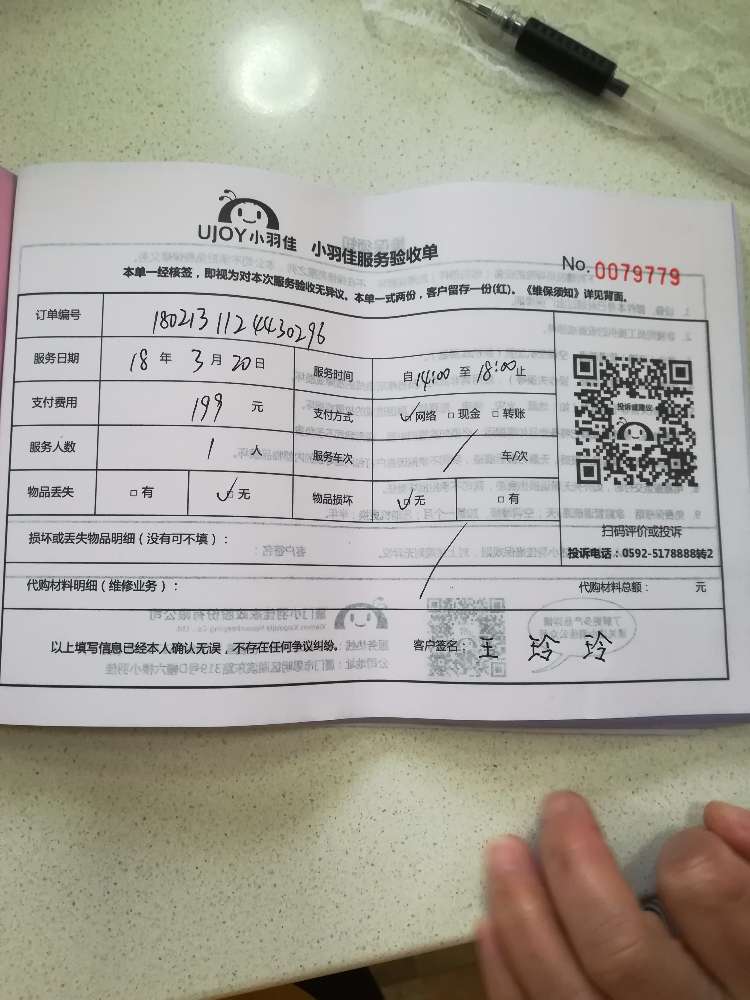 UJOY小羽佳 小羽佳服务验收单
No. 0079779
本单一经核签，即视为对本次服务验收无异议。本单一式两份，客户留存一份(红)。《维保须知》详见背面。
订单编号 1802131124430296
服务日期 18 年 3 月 20 日 服务时间 自 14:00 至 18:00 止
支付费用 199 元 支付方式 ☑网络 □现金 □转账
投诉或建议
服务人数 1 人 服务车次 / 车/次
物品丢失 □有 ☑无 物品损坏 ☑无 □有
扫码评价或投诉
损坏或丢失物品明细（没有可不填）：
投诉电话：0592-5178888转2
代购材料明细（维修业务）： 代购材料总额： 元
以上填写信息已经本人确认无误，不存在任何争议纠纷。 客户签名： 王玲玲